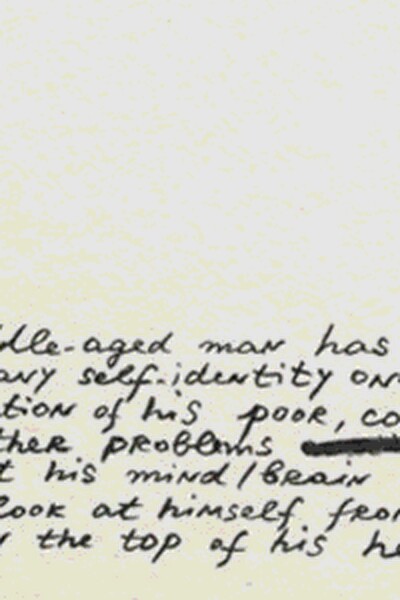 dle-aged man has
any self-identity on
tion of his poor, co
ther problems
t his mind/brain
look at himself from
the top of his he